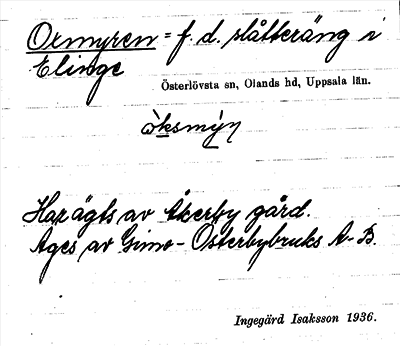 Oxmyren = f. d. slåtteräng i
Elinge
Österlövsta sn, Olands hd, Uppsala län.
òksmy̆ṛ
Har ägts av Åkerby gård.
Äges av Gimo-Österbybruks A-B.
Ingegärd Isaksson 1936.